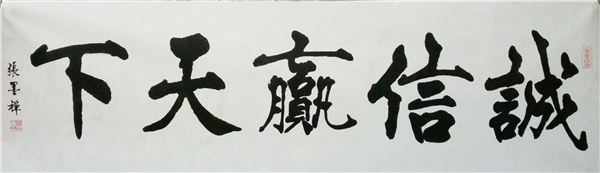 誠信贏天下
張墨禪